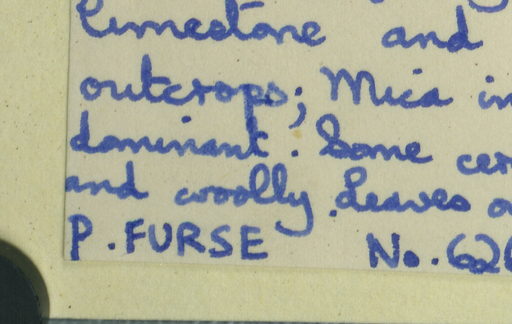 limestone and
outcrops; Mica in
dominant. Some cer
and woolly. Leaves o
P. FURSE No. 626